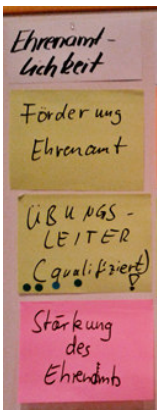 Ehrenamt-
lichkeit
Förderung
Ehrenamt
ÜBUNGS-
LEITER
(qualifiziert)
!
Stärkung
des
Ehrenamts